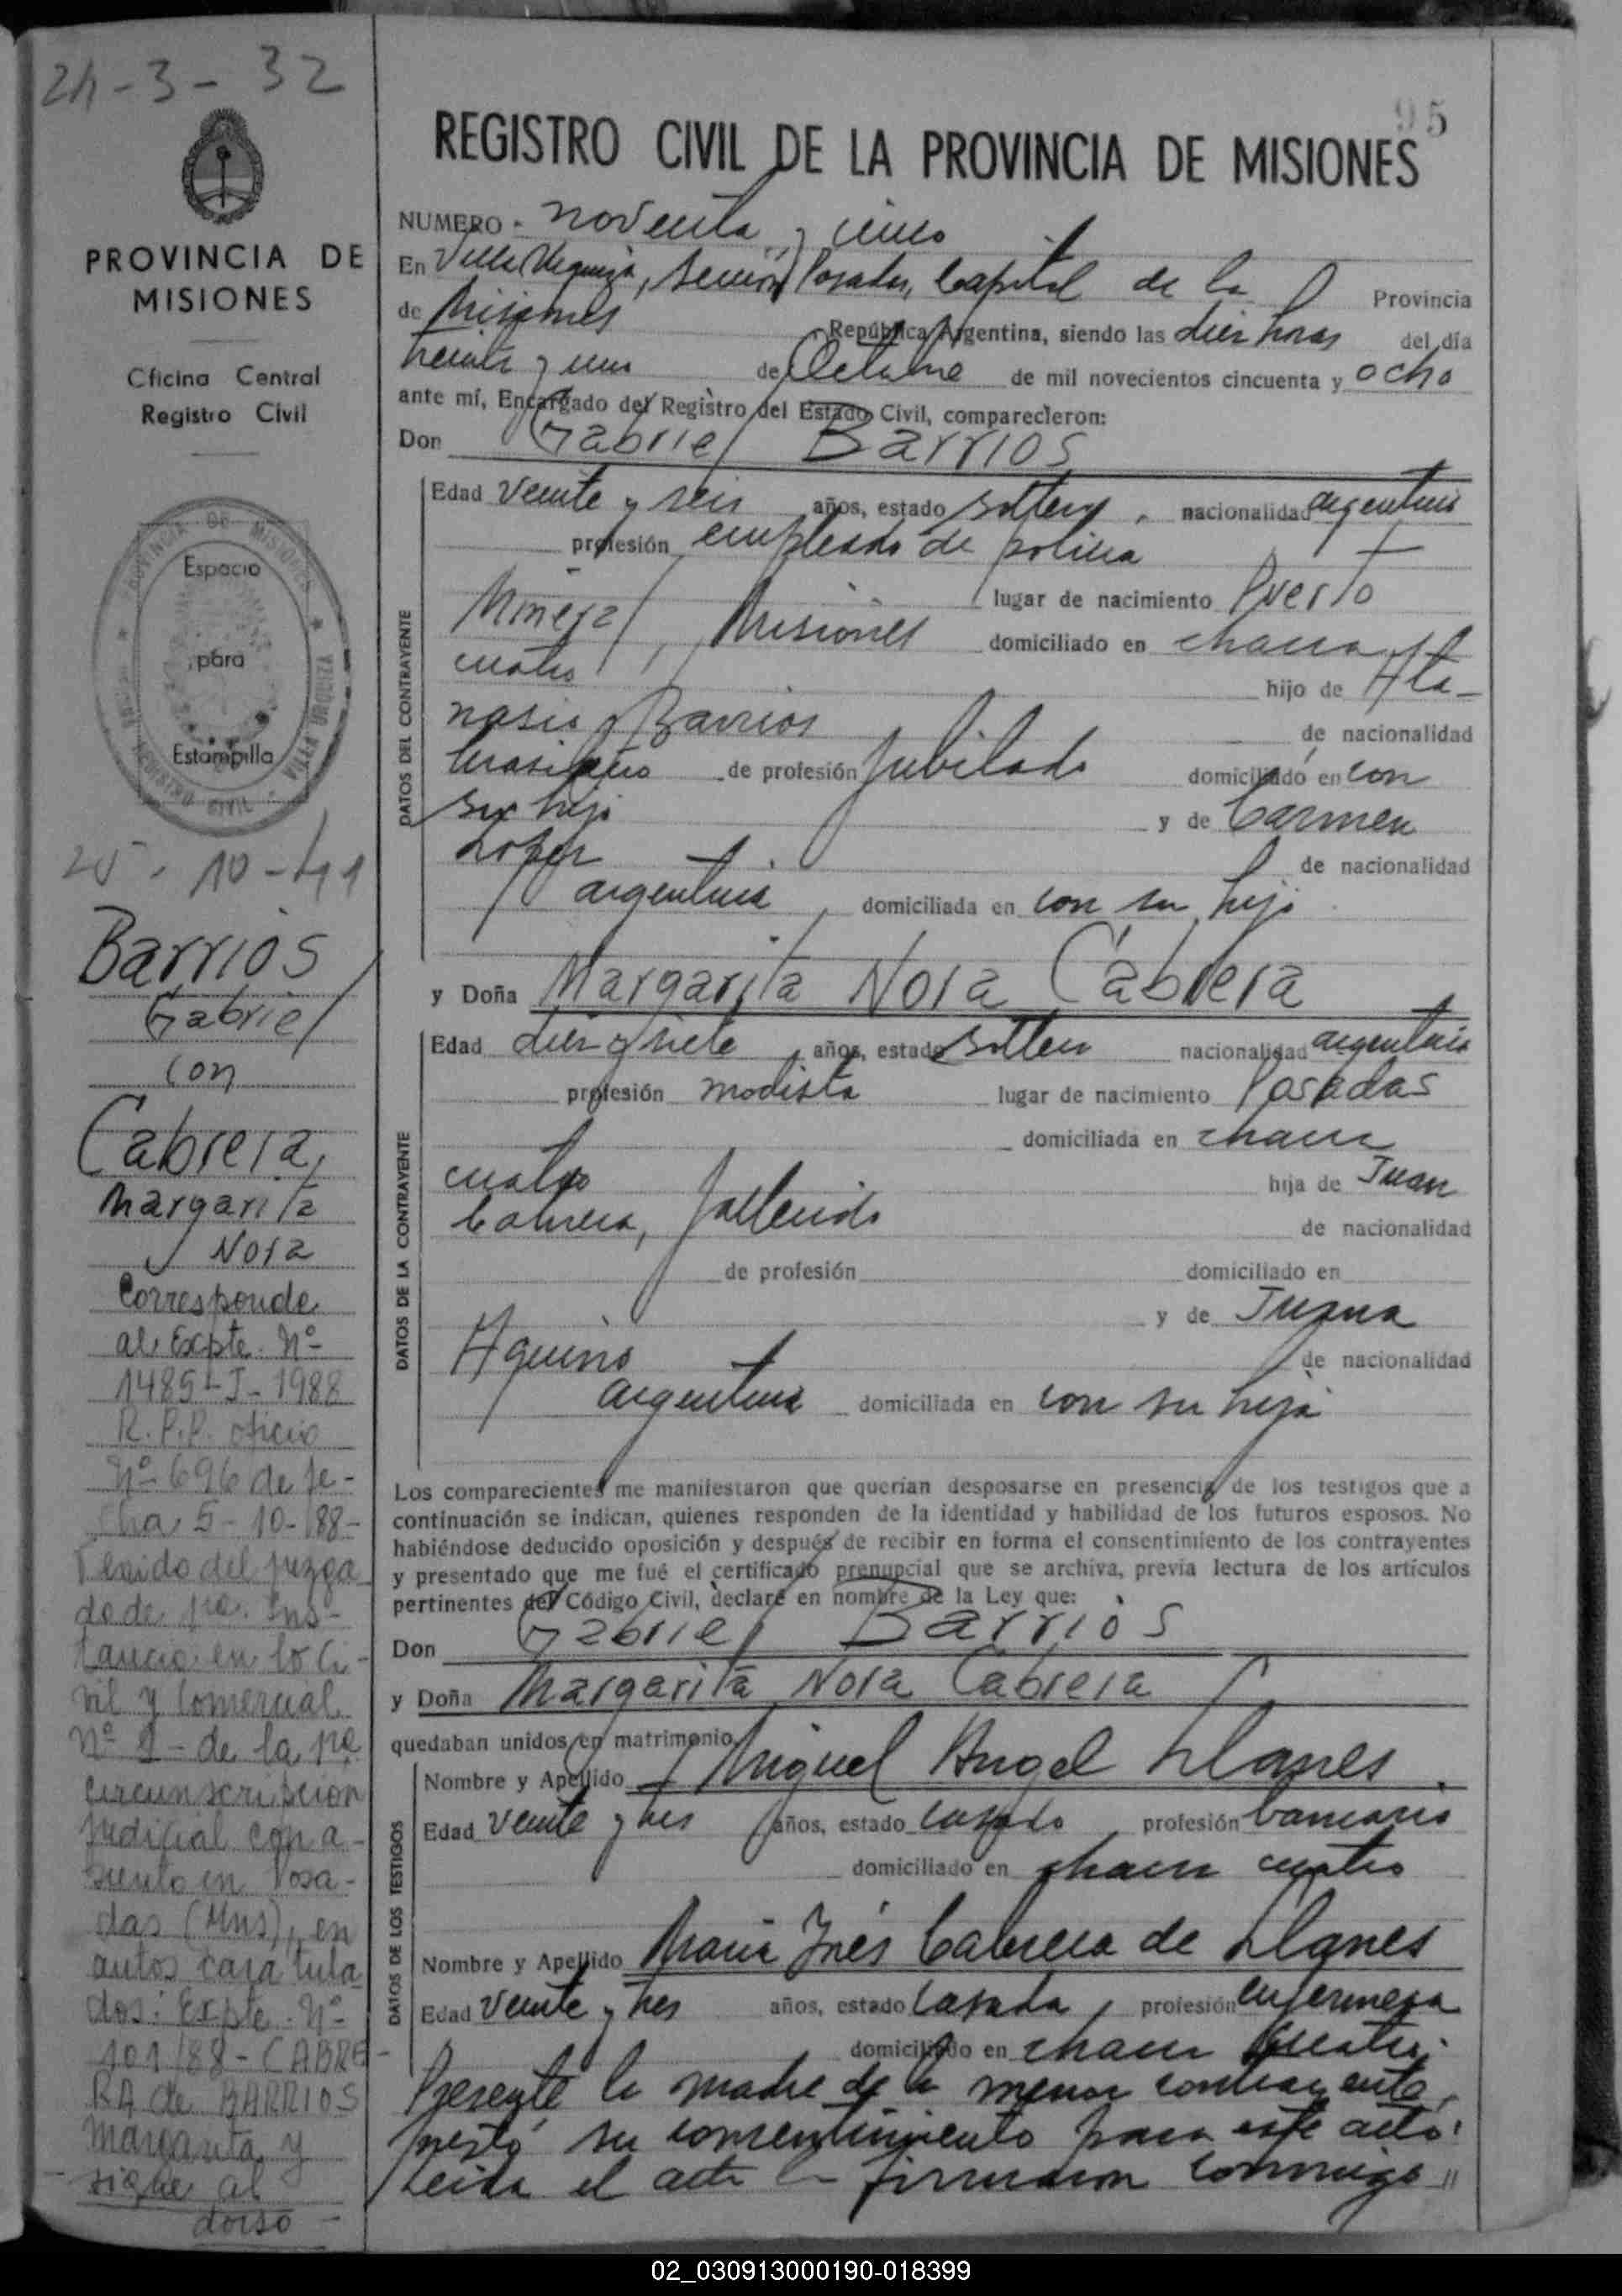 24-3-32
95
REGISTRO CIVIL DE LA PROVINCIA DE MISIONES
PROVINCIA DE
MISIONES
Oficina Central
Registro Civil
Espacio
para
Estampilla
PROVINCIA DE MISIONES
REGISTRO CIVIL
25-10-41
Barrios
Gabriel
con
Cabrera,
Margarita
Nora
Corresponde
al Expte. Nº
1485-J-1988
R.P.P. oficio
Nº 696 de fe-
cha 5-10-88-
del Juzga
do de 1ra. Ins-
tancia en lo Ci-
vil y Comercial
Nº - de la 1ra
circunscripción
Judicial con a-
siento en Posa-
das (Mns), en
autos caratula
dos: Expte. Nº
101/88 - CABRE-
RA de BARRIOS
Margarita y
sigue al
dorso -
NUMERO - noventa y cinco
En Villa Urquiza, Sección Posadas, Capital de la Provincia
de Misiones República Argentina, siendo las diez horas del día
treinta y uno de Octubre de mil novecientos cincuenta y ocho
ante mí, Encargado del Registro del Estado Civil, comparecieron:
Don Gabriel Barrios
DATOS DEL CONTRAYENTE
Edad veinte y seis años, estado soltero, nacionalidad argentino
profesión empleado de policia
lugar de nacimiento Puerto
Mineral, Misiones domiciliado en chacra
cuatro hijo de Ata-
nasio Barrios de nacionalidad
brasileño de profesión jubilado domiciliado en con
su hijo y de Carmen
Lopez de nacionalidad
argentina, domiciliada en con su hijo
y Doña Margarita Nora Cabrera
DATOS DE LA CONTRAYENTE
Edad diez y siete años, estado soltera nacionalidad argentina
profesión modista lugar de nacimiento Posadas
domiciliada en chacra
cuatro hija de Juan
Cabrera, fallecido de nacionalidad
de profesión domiciliado en
y de Juana
Aquino de nacionalidad
argentina domiciliada en con su hija
Los comparecientes me manifestaron que querían desposarse en presencia de los testigos que a
continuación se indican, quienes responden de la identidad y habilidad de los futuros esposos. No
habiéndose deducido oposición y después de recibir en forma el consentimiento de los contrayentes
y presentado que me fué el certificado prenupcial que se archiva, previa lectura de los artículos
pertinentes del Código Civil, declaré en nombre de la Ley que:
Don Gabriel Barrios
y Doña Margarita Nora Cabrera
quedaban unidos en matrimonio.
DATOS DE LOS TESTIGOS
Nombre y Apellido Miguel Angel Llanes
Edad veinte y tres años, estado casado profesión bancario
domiciliado en chacra cuatro
Nombre y Apellido Maria Inés Cabrera de Llanes
Edad veinte y tres años, estado casada, profesión enfermera
domiciliado en chacra cuatro.
Presente la madre de la menor contrayente,
prestó su consentimiento para este acto.
Leida el acta la firmaron conmigo
02_030913000190-018399